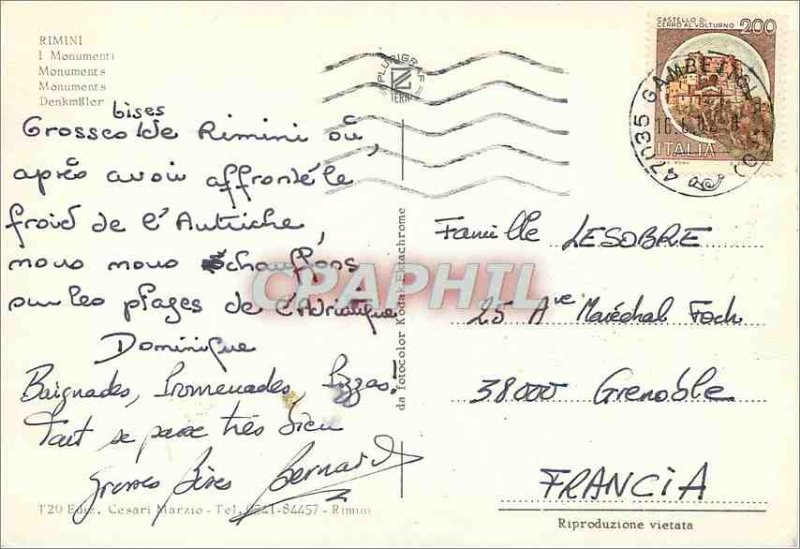 RIMINI
I Monumenti
Monuments
Monuments
Denkmäler
bises
Grosses de Rimini où,
après avoir affronté le
froid de l'Autriche,
nous nous échauffons
sur les plages de l'Adriatique
Dominique
Baignades, Promenades, Pizzas!
Tout se passe très bien
grosses bises Bernard
T20 Ediz. Cesari Marzio - Tel. 0541-84457 - Rimini
da fotocolor Kodak Ektachrome
CPAPHIL
PLURIGRAF
TERNI
CASTELLO DI
CERRO AL VOLTURNO
200
ITALIA
47035 GAMBETTOLA (FO)
Famille LESOBRE
25 Ave Maréchal Foch
38000 Grenoble
FRANCIA
Riproduzione vietata